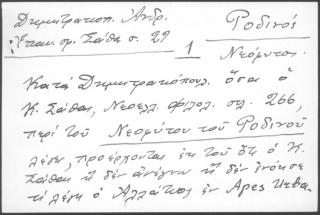 Δημητρακοπ. Ἀνδρ.
Ῥοδινός
Ἐπαν. σφ. Σάθα σ. 29
1
Νεόφυτος.
Κατὰ Δημητρακόπουλ. ὅσα ὁ
Κ. Σάθας, Νεοελλ. Φιλολ. σελ. 266,
περὶ τοῦ Νεοφύτου τοῦ Ῥοδινοῦ
λέγει, προέρχονται ἐκ τοῦ ὅτι ὁ Κ.
Σάθας ἢ δὲν ἀνέγνω ἢ δὲν ἐνόησε
τί λέγει ὁ Ἀλλάτιος ἐν Apes Urba-